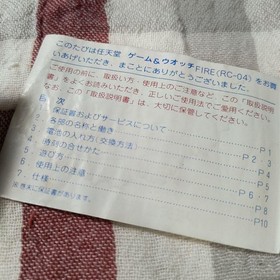 このたびは任天堂 ゲーム&ウオッチFIRE(RC-04)をお買
いあげいただき、まことにありがとうございました。
ご使用の前に、取扱い方・使用上のご注意など、この「取扱説明
書」をよくお読みいただき、正しいご使用法でご愛用ください。
なお、この「取扱説明書」は、大切に保管してください。
目 次
1. 保証書およびサービスについて P1
2. 各部の名称と働き P2・
3. 電池の入れ方(交換方法)
4. 時刻の合せかた P5
5. 遊び方 P6・7
6. 使用上の注意 P8
7. 仕様 P10
㊟ 巻末に保証書があります。